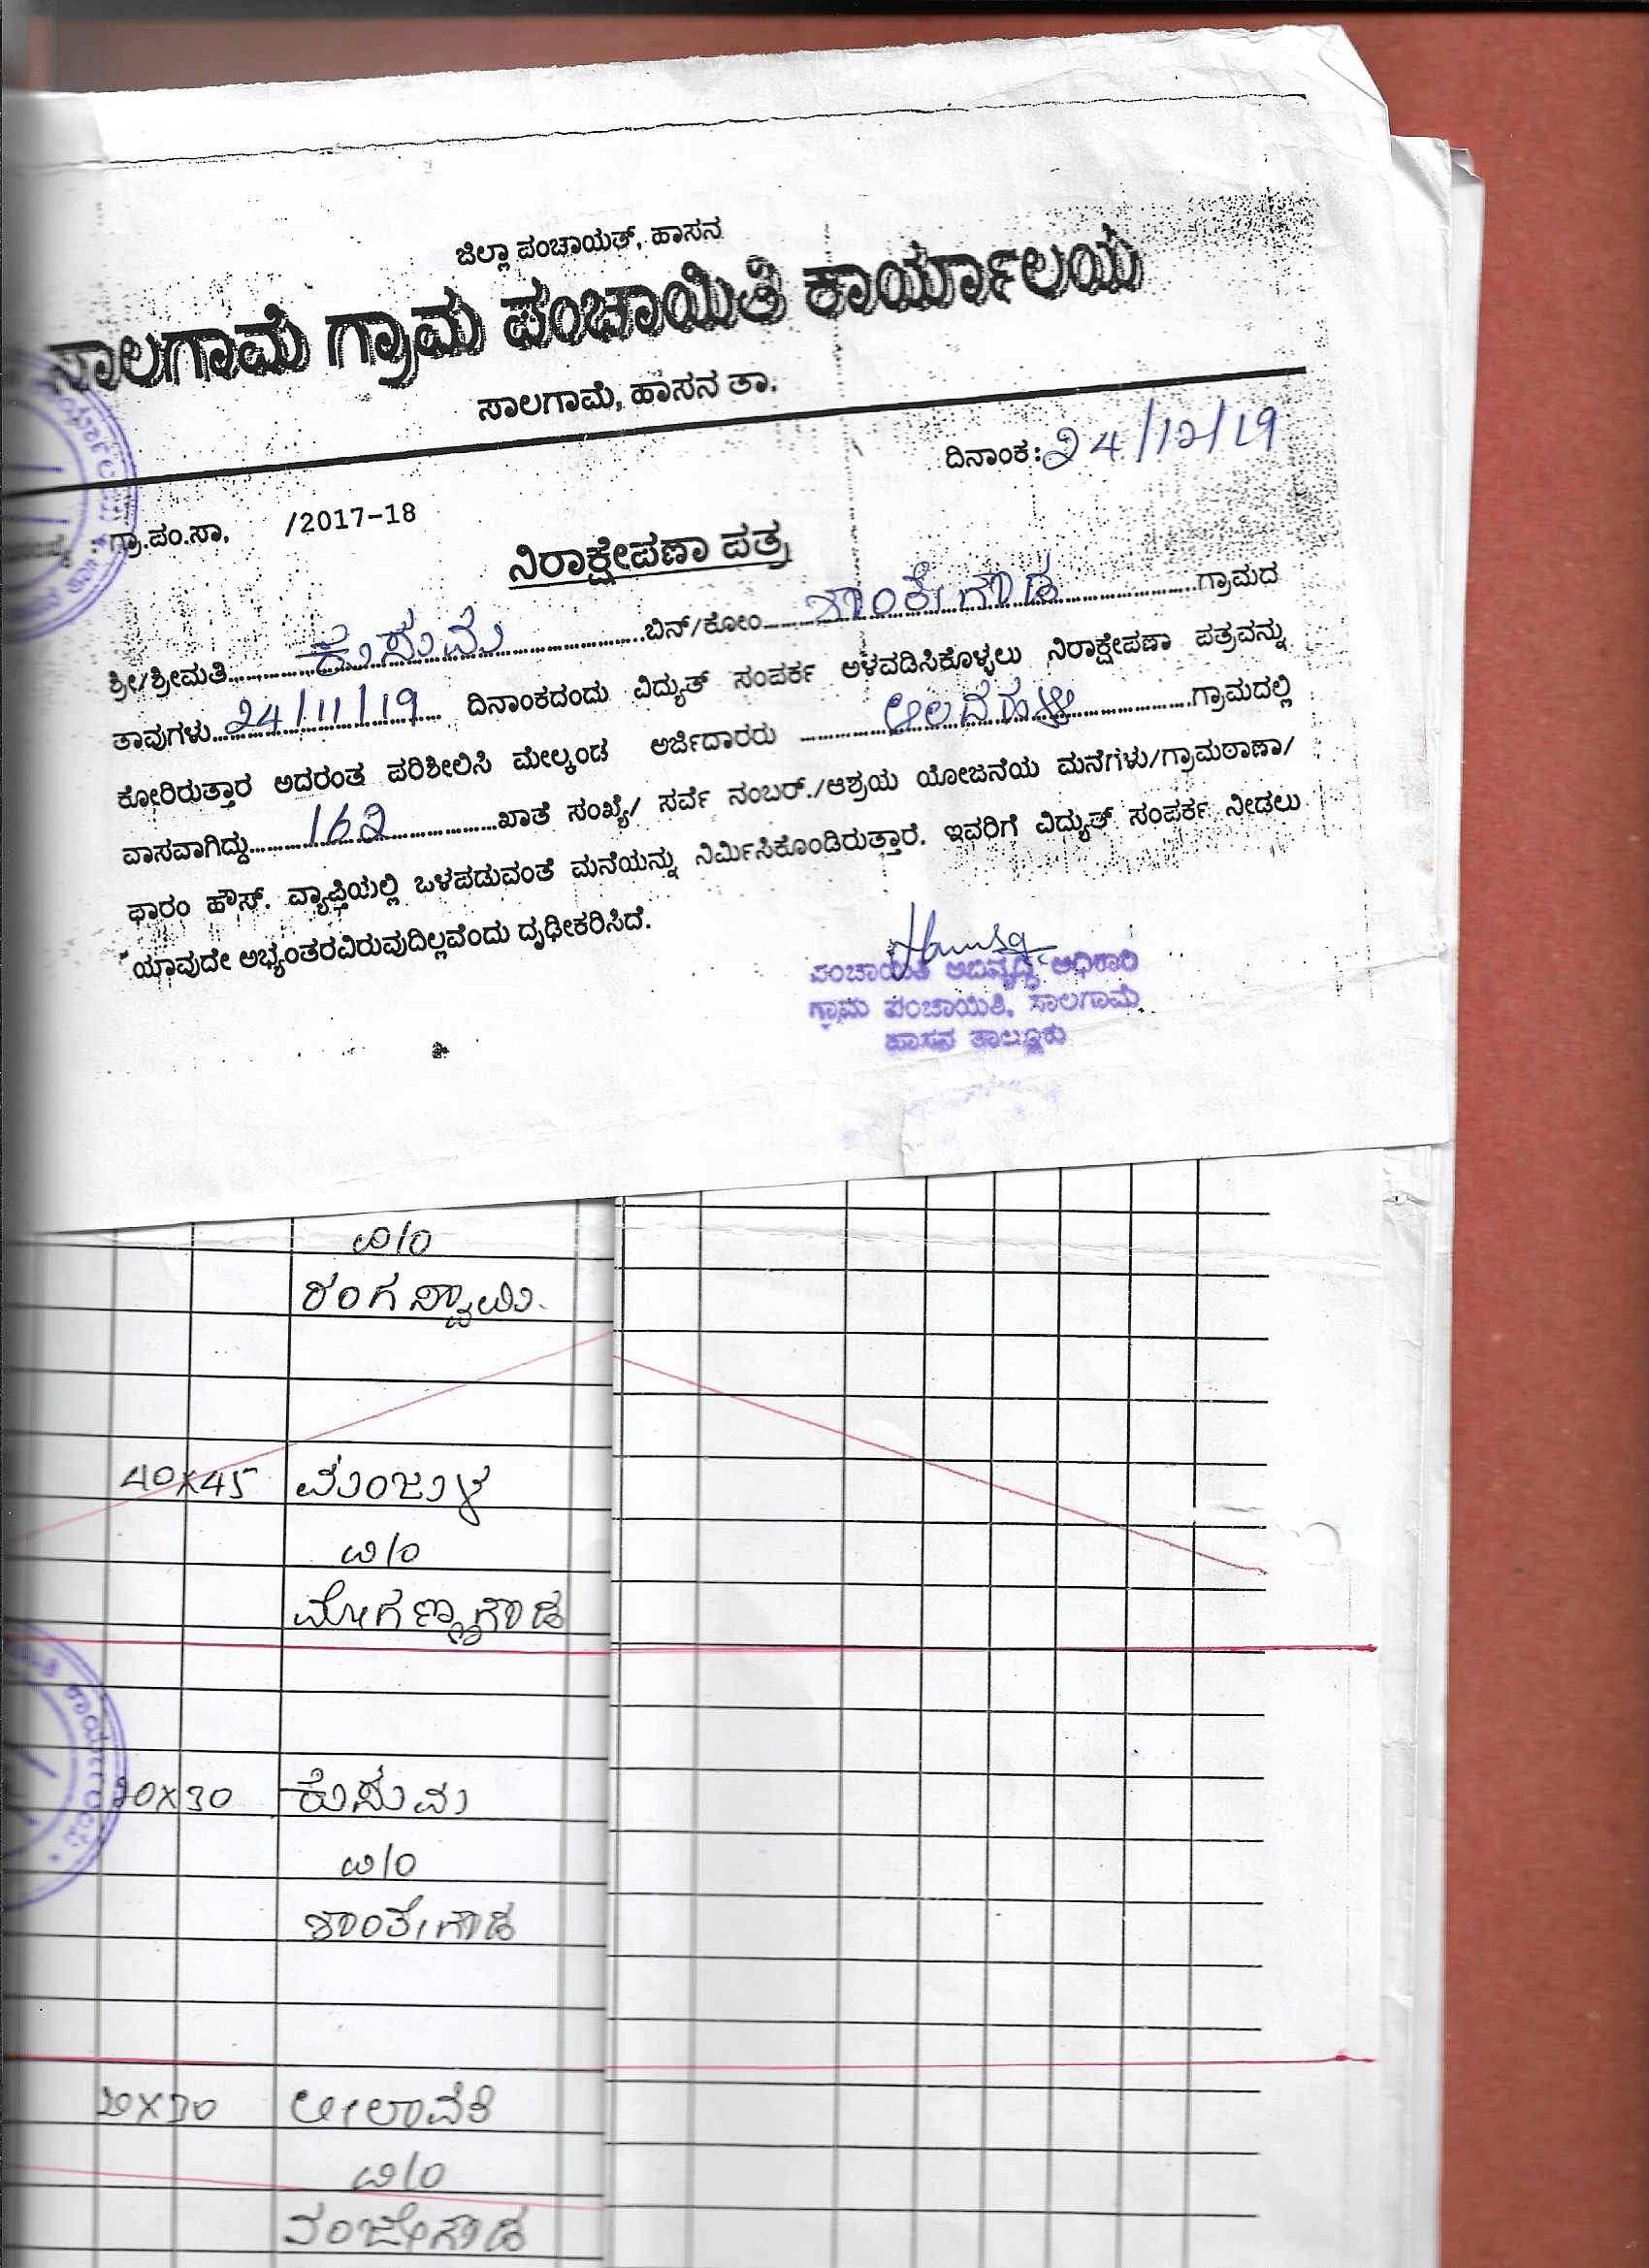 ಜಿಲ್ಲಾ ಪಂಚಾಯತ್, ಹಾಸನ
ಸಾಲಗಾಮೆ ಗ್ರಾಮ ಪಂಚಾಯಿತಿ ಕಾರ್ಯಾಲಯ
ಸಾಲಗಾಮೆ, ಹಾಸನ ತಾ.
ದಿನಾಂಕ: 24/12/19
ಗ್ರಾ.ಪಂ.ಸಾ, /2017-18
ನಿರಾಕ್ಷೇಪಣಾ ಪತ್ರ
ಶ್ರೀ/ಶ್ರೀಮತಿ ಕುಸುಮ ಬಿನ್/ಕೋಂ ಶಾಂತೇಗೌಡ ಗ್ರಾಮದ
ತಾವುಗಳು 24/11/19 ದಿನಾಂಕದಂದು ವಿದ್ಯುತ್ ಸಂಪರ್ಕ ಅಳವಡಿಸಿಕೊಳ್ಳಲು ನಿರಾಕ್ಷೇಪಣಾ ಪತ್ರವನ್ನು
ಕೋರಿರುತ್ತಾರ ಅದರಂತ ಪರಿಶೀಲಿಸಿ ಮೇಲ್ಕಂಡ ಅರ್ಜಿದಾರರು ಆಲದಹಳ್ಳಿ ಗ್ರಾಮದಲ್ಲಿ
ವಾಸವಾಗಿದ್ದು 162 ಖಾತೆ ಸಂಖ್ಯೆ/ ಸರ್ವೆ ನಂಬರ್./ಆಶ್ರಯ ಯೋಜನೆಯ ಮನೆಗಳು/ಗ್ರಾಮಠಾಣಾ/
ಫಾರಂ ಹೌಸ್. ವ್ಯಾಪ್ತಿಯಲ್ಲಿ ಒಳಪಡುವಂತೆ ಮನೆಯನ್ನು ನಿರ್ಮಿಸಿಕೊಂಡಿರುತ್ತಾರೆ. ಇವರಿಗೆ ವಿದ್ಯುತ್ ಸಂಪರ್ಕ ನೀಡಲು
ಯಾವುದೇ ಅಭ್ಯಂತರವಿರುವುದಿಲ್ಲವೆಂದು ದೃಢೀಕರಿಸಿದೆ.
ಪಂಚಾಯಿತಿ ಅಭಿವೃದ್ಧಿ ಅಧಿಕಾರಿ
ಗ್ರಾಮ ಪಂಚಾಯಿತಿ, ಸಾಲಗಾಮೆ
ಹಾಸನ ತಾಲ್ಲೂಕು
ಬಿ/ಂ
ರಂಗಸ್ವಾಮಿ.
40X45 ಮಂಜುಳ
ಬಿ/ಂ
ಮೋಗಣ್ಣಗೌಡ
20X30 ಕುಸುಮ
ಬಿ/ಂ
ಶಾಂತೇಗೌಡ
20X30 ಲೀಲಾವತಿ
ಬಿ/ಂ
ನಂಜೇಗೌಡ